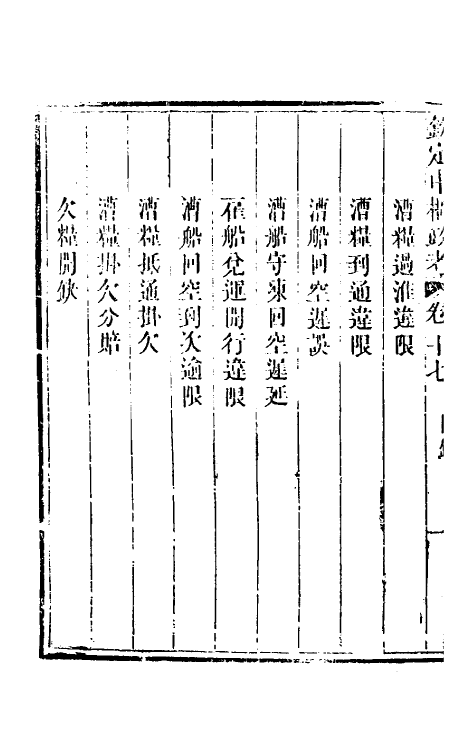 欽定中樞政考 卷十七 目錄
漕糧過淮違限
漕糧到通違限
漕船回空遲誤
漕船守凍回空遲延
雇船兌運開行違限
漕船回空到次逾限
漕糧抵通掛欠
漕糧掛欠分賠
欠糧開缺